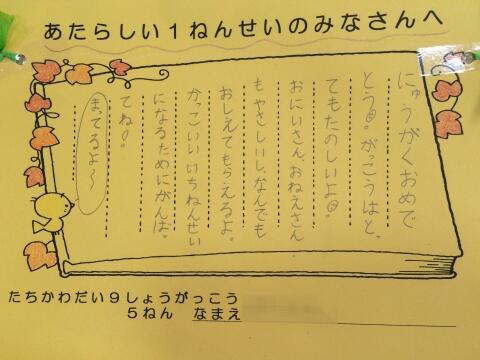 あたらしい１ねんせいのみなさんへ
にゅうがくおめで
とう。がっこうはと
てもたのしいよ。
おにいさん、おねえさん
もやさしいし、なんでも
おしえてもらえるよ。
かっこいいいちねんせい
になるためにがんば。
てね！。
まってるよ〜
たちかわだい９しょうがっこう
５ねん　なまえ